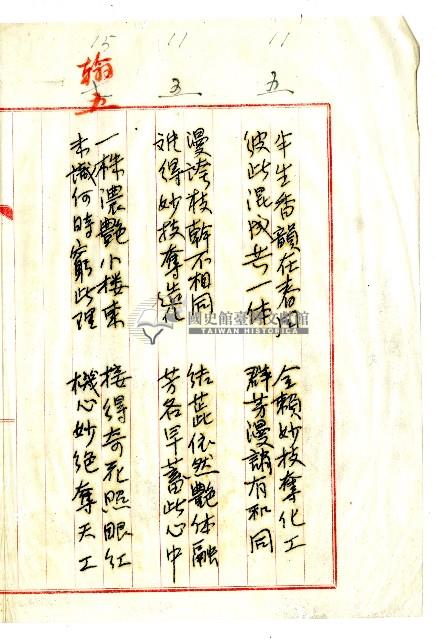 11
11
15
五
五
翰
五
半生香韻在春風　全賴妙技奪化工
彼此混成共一体　群芳漫誚有和同
漫誇枝幹不相同　結蕋依然艷体融
誰得妙技奪造化　芳名早蓄此心中
一株濃艷小楼東　接得奇花照眼紅
未識何時窮此理　機心妙絕奪天工
國史館臺灣文獻館
TAIWAN HISTORICA